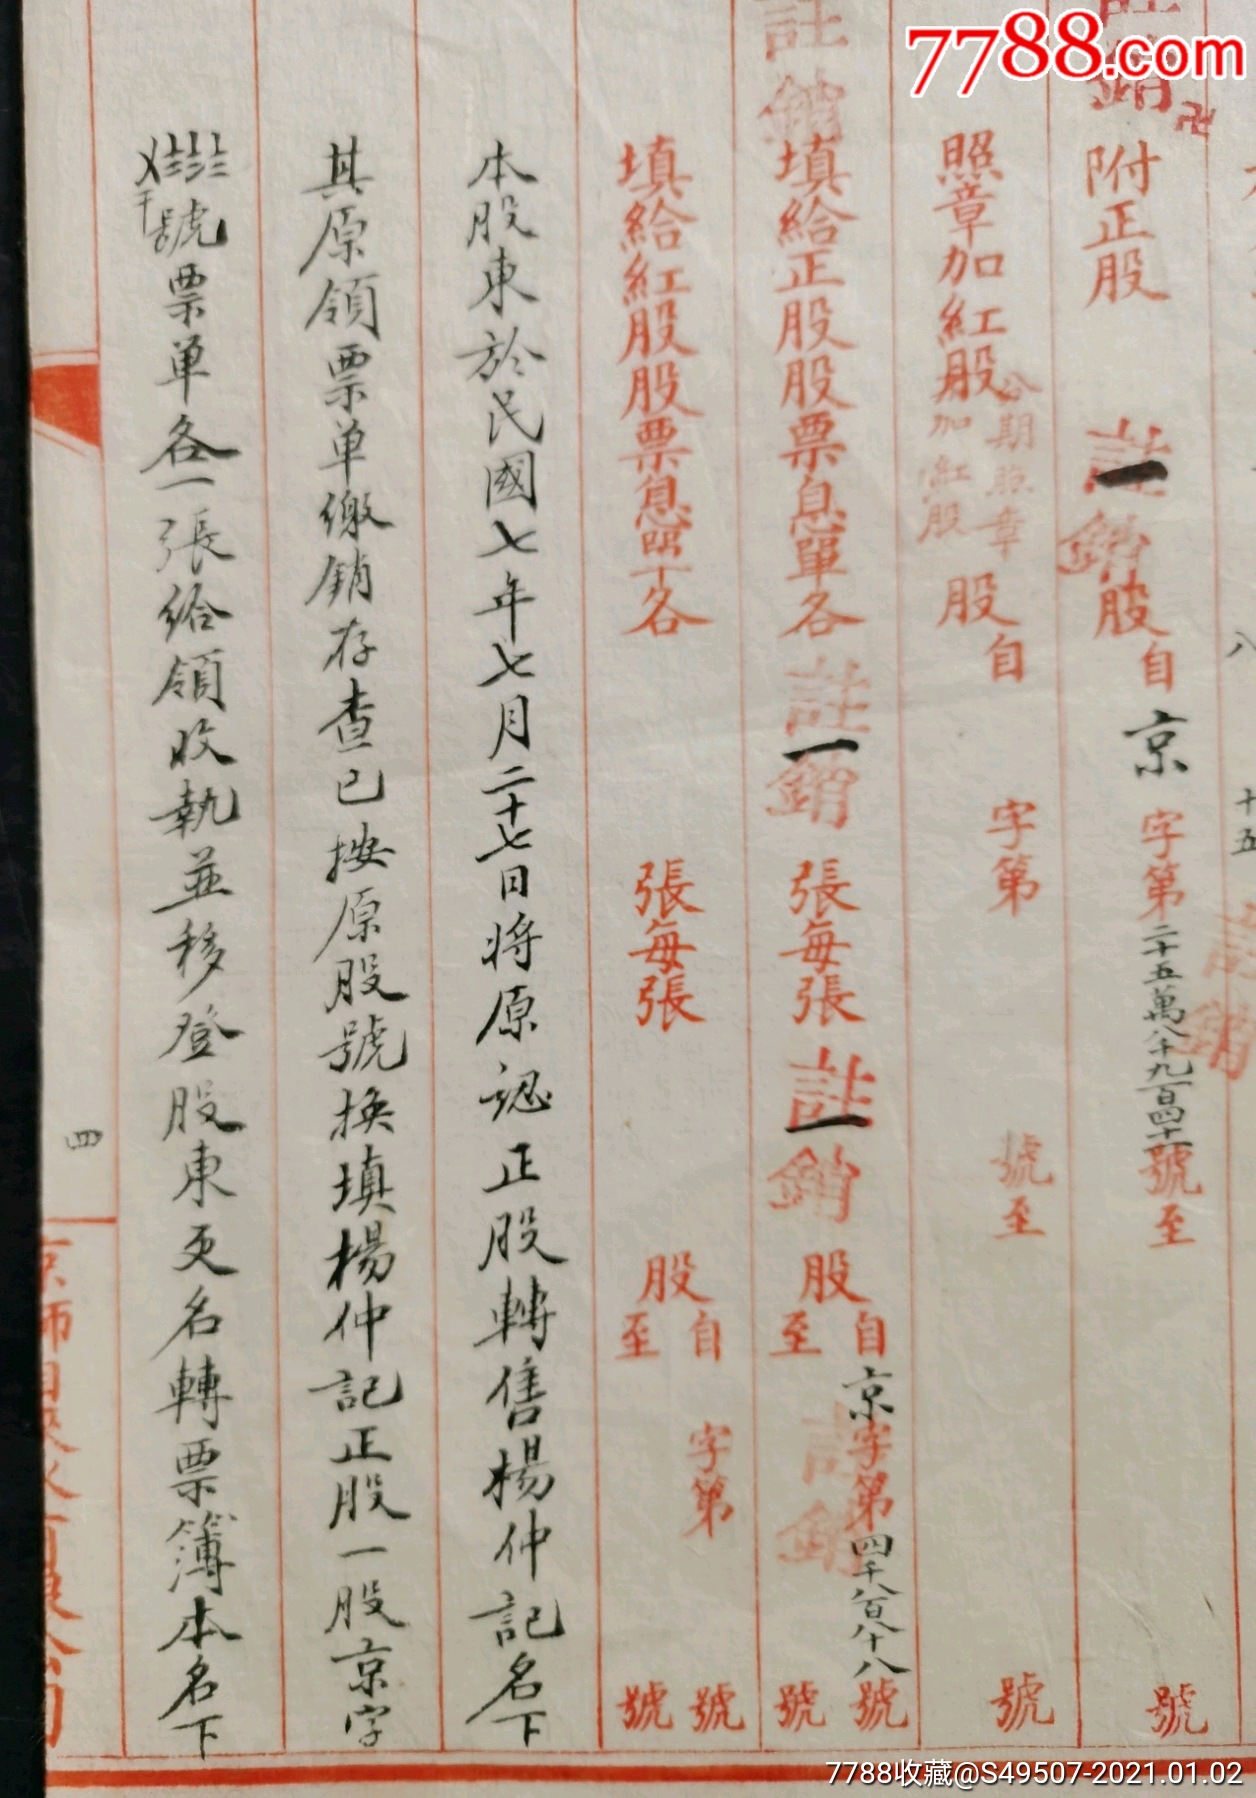 7788.com
註銷
卍
附正股
註銷
一
股
自
京
字第二十五萬八千九百四十
號至
號
照章加紅股
分期照章
加紅股
股
自
字第
號至
號
註銷
填給正股股票息單各
註銷
一
張每張
註銷
一
股
自
京字第四千八百八十八號
至
號
填給紅股股票息單各
張每張
股
自
字第
號
至
號
本股東於民國七年七月二十七日將原認正股轉售楊仲記名下
其原領票單繳銷存查已按原股號換填楊仲記正股一股京字
號票單各一張給領收執並移登股東更名轉票簿本名下
四
京師自來水有限公司
八
十五
註銷
7788收藏@S49507-2021.01.02